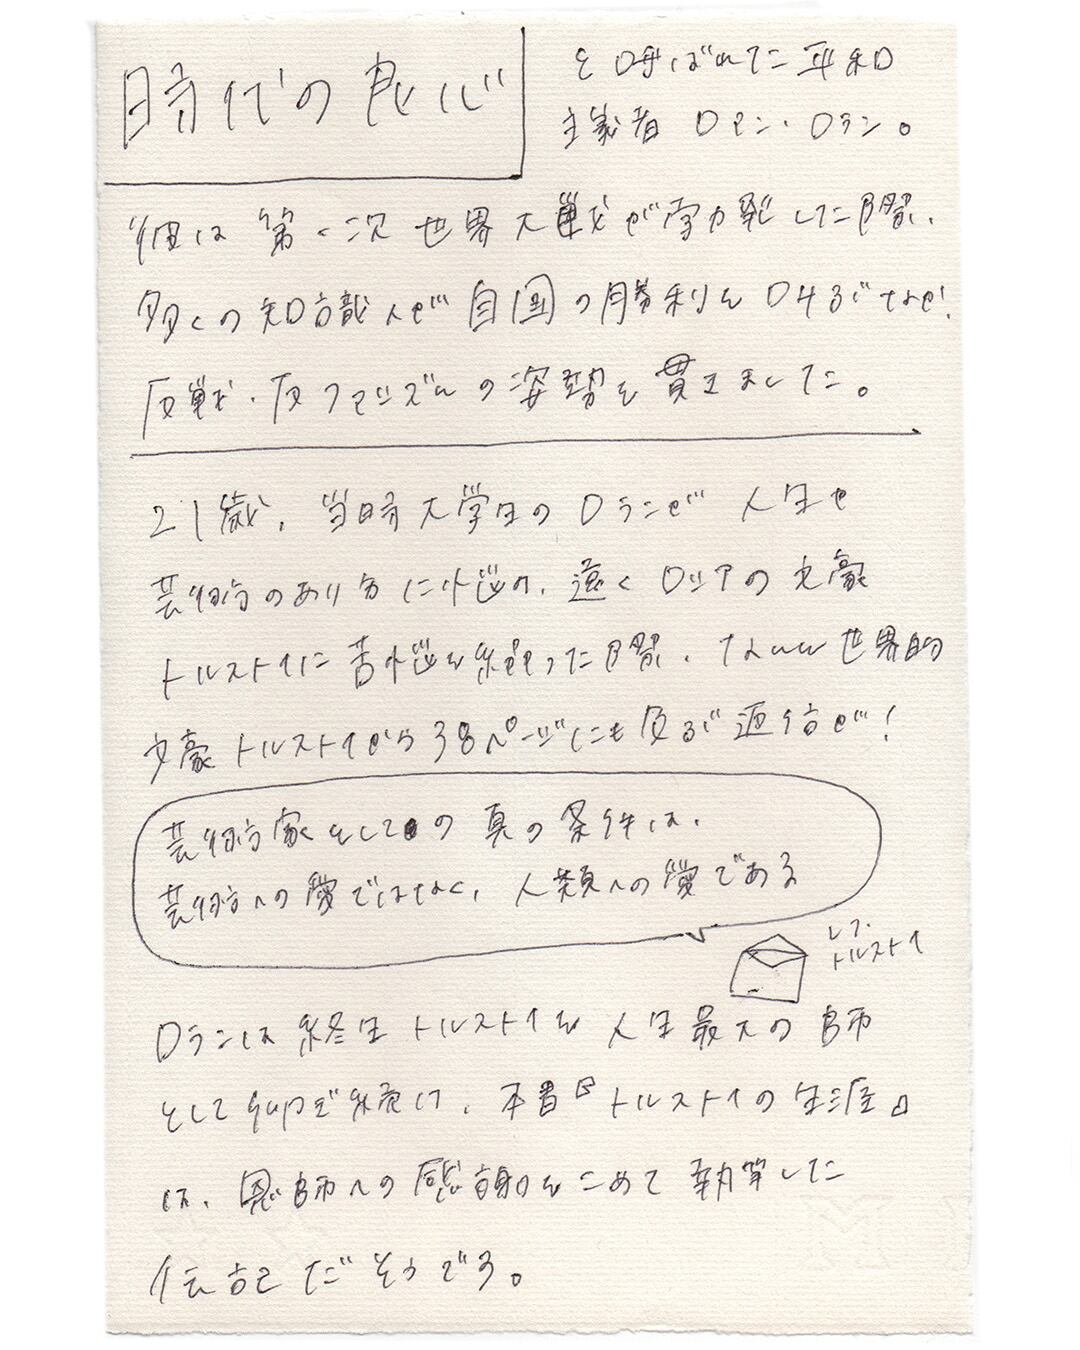 時代の良心
と呼ばれた平和
主義者 ロマン・ロラン。
彼は第一次世界大戦が勃発した際、
多くの知識人が自国の勝利を叫ぶなか!
反戦・反ファシズムの姿勢を貫きました。
21歳、当時大学生のロランが人生や
芸術のあり方に悩み、遠くロシアの文豪
トルストイに苦悩を綴った際、なんと世界的
文豪トルストイから38ページにも及ぶ返信が!
芸術家としての真の条件は、
芸術への愛ではなく、人類への愛である
レフ・
トルストイ
ロランは終生トルストイを人生最大の師
として仰ぎ続け、本書『トルストイの生涯』
は、恩師への感謝をこめて執筆した
伝記だそうです。